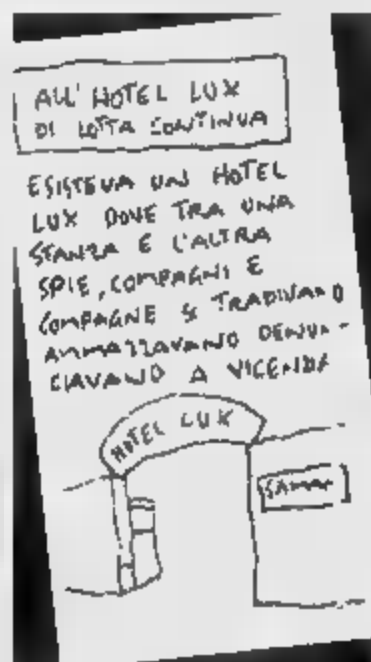 ALL' HOTEL LUX
DI LOTTA CONTINUA
ESISTEVA UN HOTEL
LUX DOVE TRA UNA
STANZA E L'ALTRA
SPIE, COMPAGNI E
COMPAGNE SI TRADIVANO
AMMAZZAVANO DENUN-
CIAVANO A VICENDA
HOTEL LUX